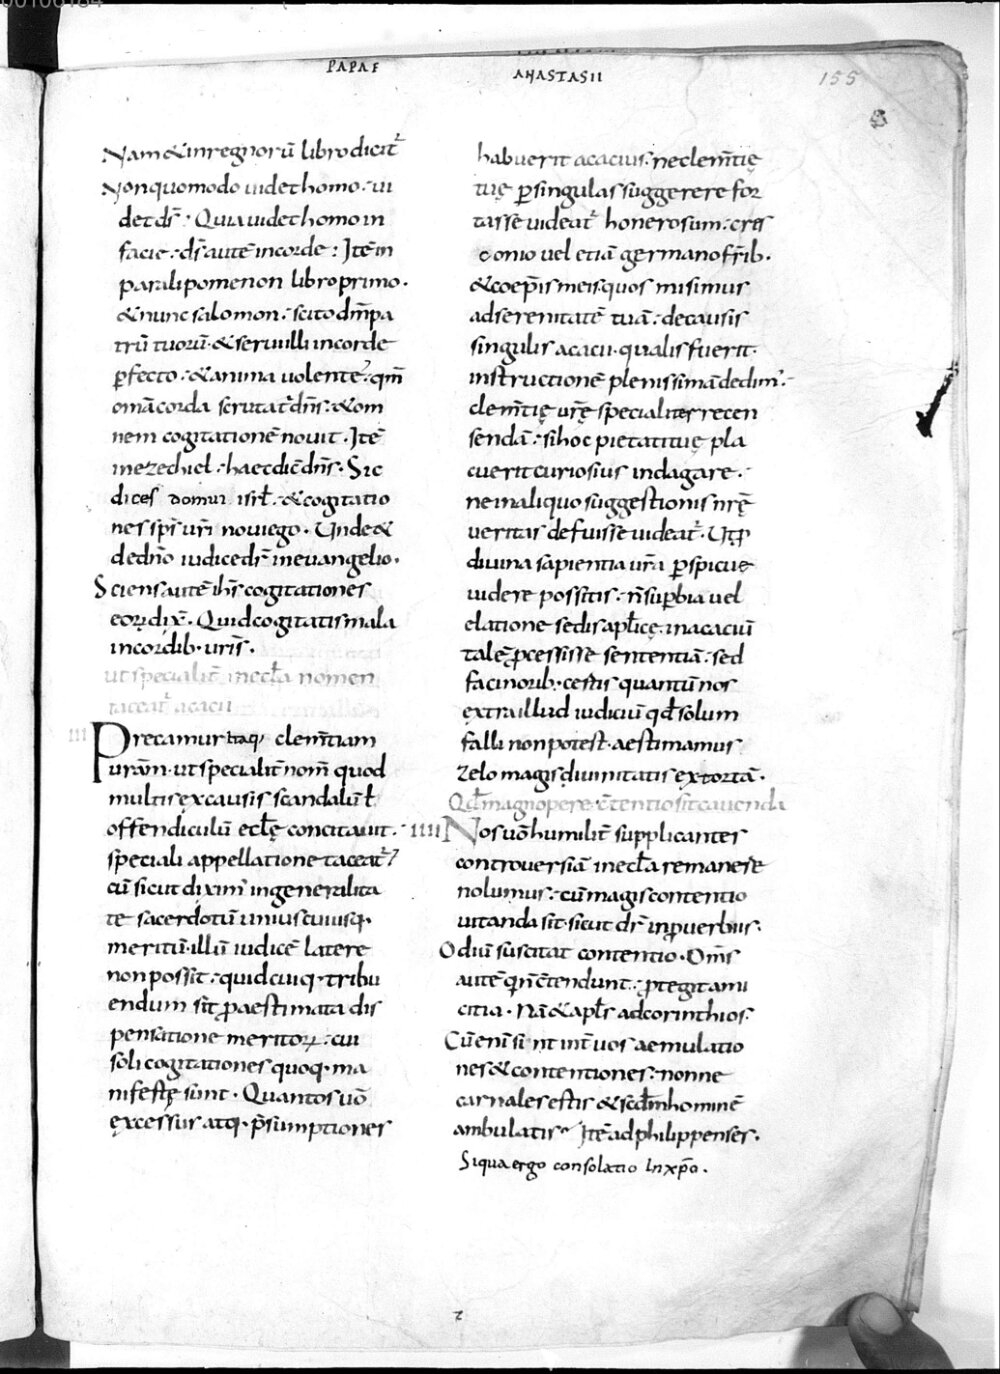 PAPAE ANASTASII 155
Nam & in regnorū libro dicit᷑
Non quomodo uidet homo·ui
det dr̄· Quia uidet homo in
facie· ds̄ autē in corde· Itē in
paralipomenon libro primo·
& nunc salomon· scito dm̄ pa
trū tuorū·& serui illi in corde
ꝑfecto·& anima uolente· qm̄
omā corda scrutat᷑ dn̄s·& om
nem cogitationē nouit· Itē
in ezechiel· haec dic̄ dn̄s· Sic
dices domui isrl̄·& cogitatio
nes sps̄ ur̄i noui ego· Unde &
de dn̄o iudice dr̄ in euangelio·
Sciens autē ih̄s cogitationes
eoꝝ dix̄· Quid cogitatis mala
in cordib· uris̄·
ut specialit̄ in eccl̄a nomen
taceat᷑ acacii
III Precamur itaq· clem̄tiam
uram̄·ut specialit̄ nom̄ quod
multis ex causis scandalū l̄
offendiculū eccl̄ę concitauit·
speciali appellatione taceat᷑
cū sicut dixim᷒ in generalita
te sacerdotū uniuscuiusq·
meritū·illū iudicē latere
non possit· quid cuiq· tribu
endum sit ꝓ aestimata dis
pensatione meritoꝝ· cui
soli cogitationes quoq· ma
nifestę sunt· Quantos uō
excessus atq· p̄sumptiones
habuerit acacius· ne clem̄tię
tuę ꝑ singulas suggerere for
tasse uideat᷑ honerosum· cres
conio uel etiā germano fr̄ib·
& coep̄is meis·quos misimus
ad serenitatē tuā· de causis
singulis acacii·qualis fuerit·
instructionē plenissimā dedim᷒·
clem̄tię ur̄ę specialiter recen
sendā· si hoc pietati tuę pla
cuerit curiosius indagare·
ne in aliquo suggestionis nr̄ę
ueritas defuisse uideat᷑· Ut ꝑ
diuina sapientia ur̄a ꝑspicue
uidere possitis· n̄ suꝑbia uel
elatione sedis apl̄icę in acaciū
talē ꝓcessisse sententiā· sed
facinorib· certis quantū nos
extra illud iudiciū qd̄ solum
falli non potest·aestimamus·
zelo magis diuinitatis extortā·
Qd̄ magnopere c̄tentio sit cauenda
IIII Nos uō humilit̄ supplicantes
controuersiā in eccl̄a remanere
nolumus· cū magis contentio
uitanda sit·sicut dr̄ in ꝓuerbiis·
Odiū suscitat contentio· Om̄s
autē qn̄ c̄tendunt· ꝓtegit ami
citia· Nā & apl̄s ad corinthios·
Cū enī sint int̄ uos aemulatio
nes & contentiones· nonne
carnales estis & scdm̄ hominē
ambulatis· Itē ad philippenses·
Si qua ergo consolatio in xp̄o·